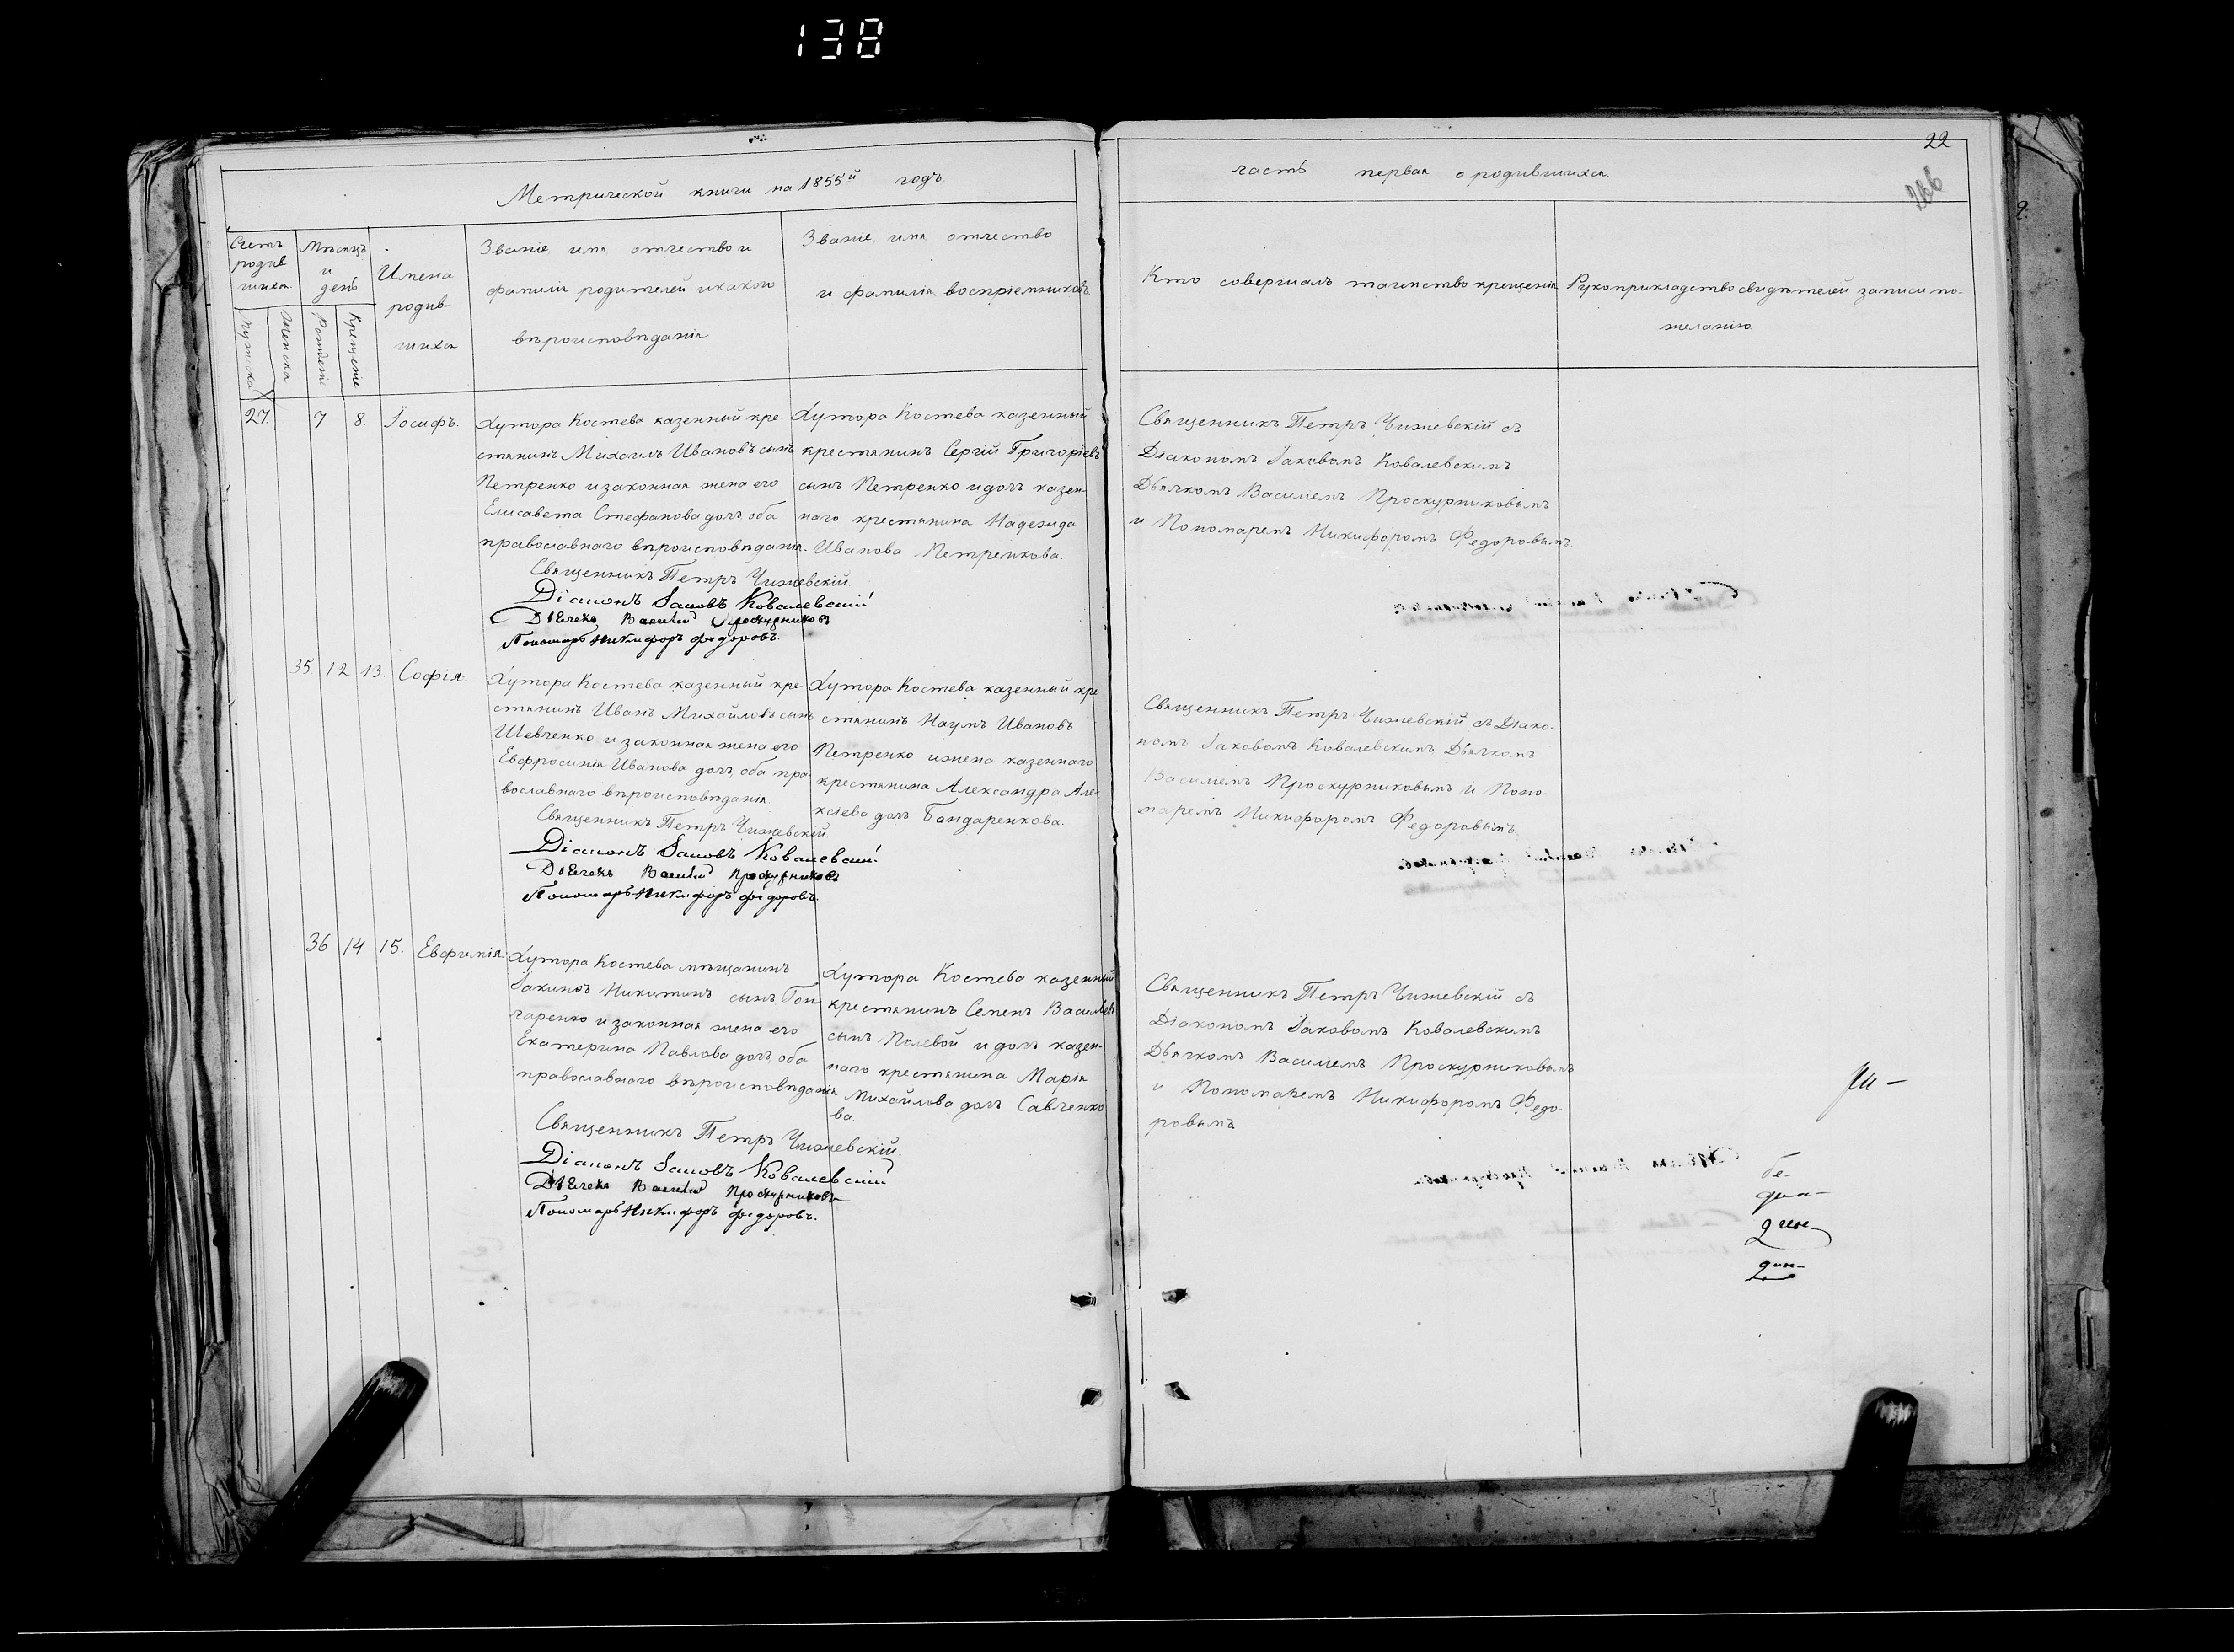 138
Метрической книги на 1855й годъ
часть первая о родившихся
22
Счетъ родив шихся.
Мѣсяцъ и день
Имена родив- шихся
Званіе, имя, отчество и
фамилія родителей и какого
вѣроисповѣданія
Званіе, имя, отчество
и фамилія воспріемниковъ
Кто совершалъ таинство крещенія
Рукоприкладство свидѣтелей записи по-
желанію
Мужска
Женска
Рожденіе
Крещеніе
27. 7 8. Іосифъ.
Хутора Костева казенный кре-
стянинъ Михаилъ Ивановъ сынъ
Петренко и законная жена его
Елисавета Стефанова дочь, оба
православнаго вѣроисповѣданія.
Священникъ Петръ Чижевскій.
Діаконъ Іаковъ Ковалевскій
Дьячекъ Василій Проскурниковъ
Пономарь Никифоръ Федоровъ.
Хутора Костева казенный
крестянинъ Сергій Григоріевъ
сынъ Петренко и дочь казен-
наго крестянина Надежда
Иванова Петренкова.
Священникъ Петръ Чижевскій съ
Діакономъ Іаковомъ Ковалевскимъ
Дьячкомъ Василіемъ Проскурниковымъ
и Пономаремъ Никифоромъ Федоровымъ.
35 12 13. Софія.
Хутора Костева казенный кре-
стянинъ Иванъ Михайловъ сынъ
Шевченко и законная жена его
Евфросинія Иванова дочь, оба пра-
вославнаго вѣроисповѣданія.
Священникъ Петръ Чижевскій.
Діаконъ Іаковъ Ковалевскій
Дьячекъ Василій Проскурниковъ
Пономарь Никифоръ Федоровъ.
Хутора Костева казенный кре
стянинъ Наумъ Ивановъ
Петренко и жена казеннаго
крестянина Александра Але-
ксіева дочь Бандаренкова.
Священникъ Петръ Чижевскій съ Діако-
номъ Іаковомъ Ковалевскимъ Дьячкомъ
Василіемъ Проскурниковымъ и Поно-
маремъ Никифоромъ Федоровымъ
36 14 15. Евфимія.
Хутора Костева мѣщанинъ
Іакимъ Никитинъ сынъ Гон-
чаренко и законная жена его
Екатерина Павлова дочь оба
православнаго вѣроисповѣданія
Священникъ Петръ Чижевскій.
Діаконъ Іаковъ Ковалевскій
Дьячекъ Василій Проскурниковъ
Пономарь Никифоръ Федоровъ.
Хутора Костева казенный
крестянинъ Семенъ Васильевъ
сынъ Полевой и дочь казен-
наго крестянина Марія
Михайлова дочь Савченко
ва.
Священникъ Петръ Чижевскій съ
Діакономъ Іаковомъ Ковалевскимъ
Дьячкомъ Василіемъ Проскурниковымъ
и Пономаремъ Никифоромъ Федо-
ровымъ